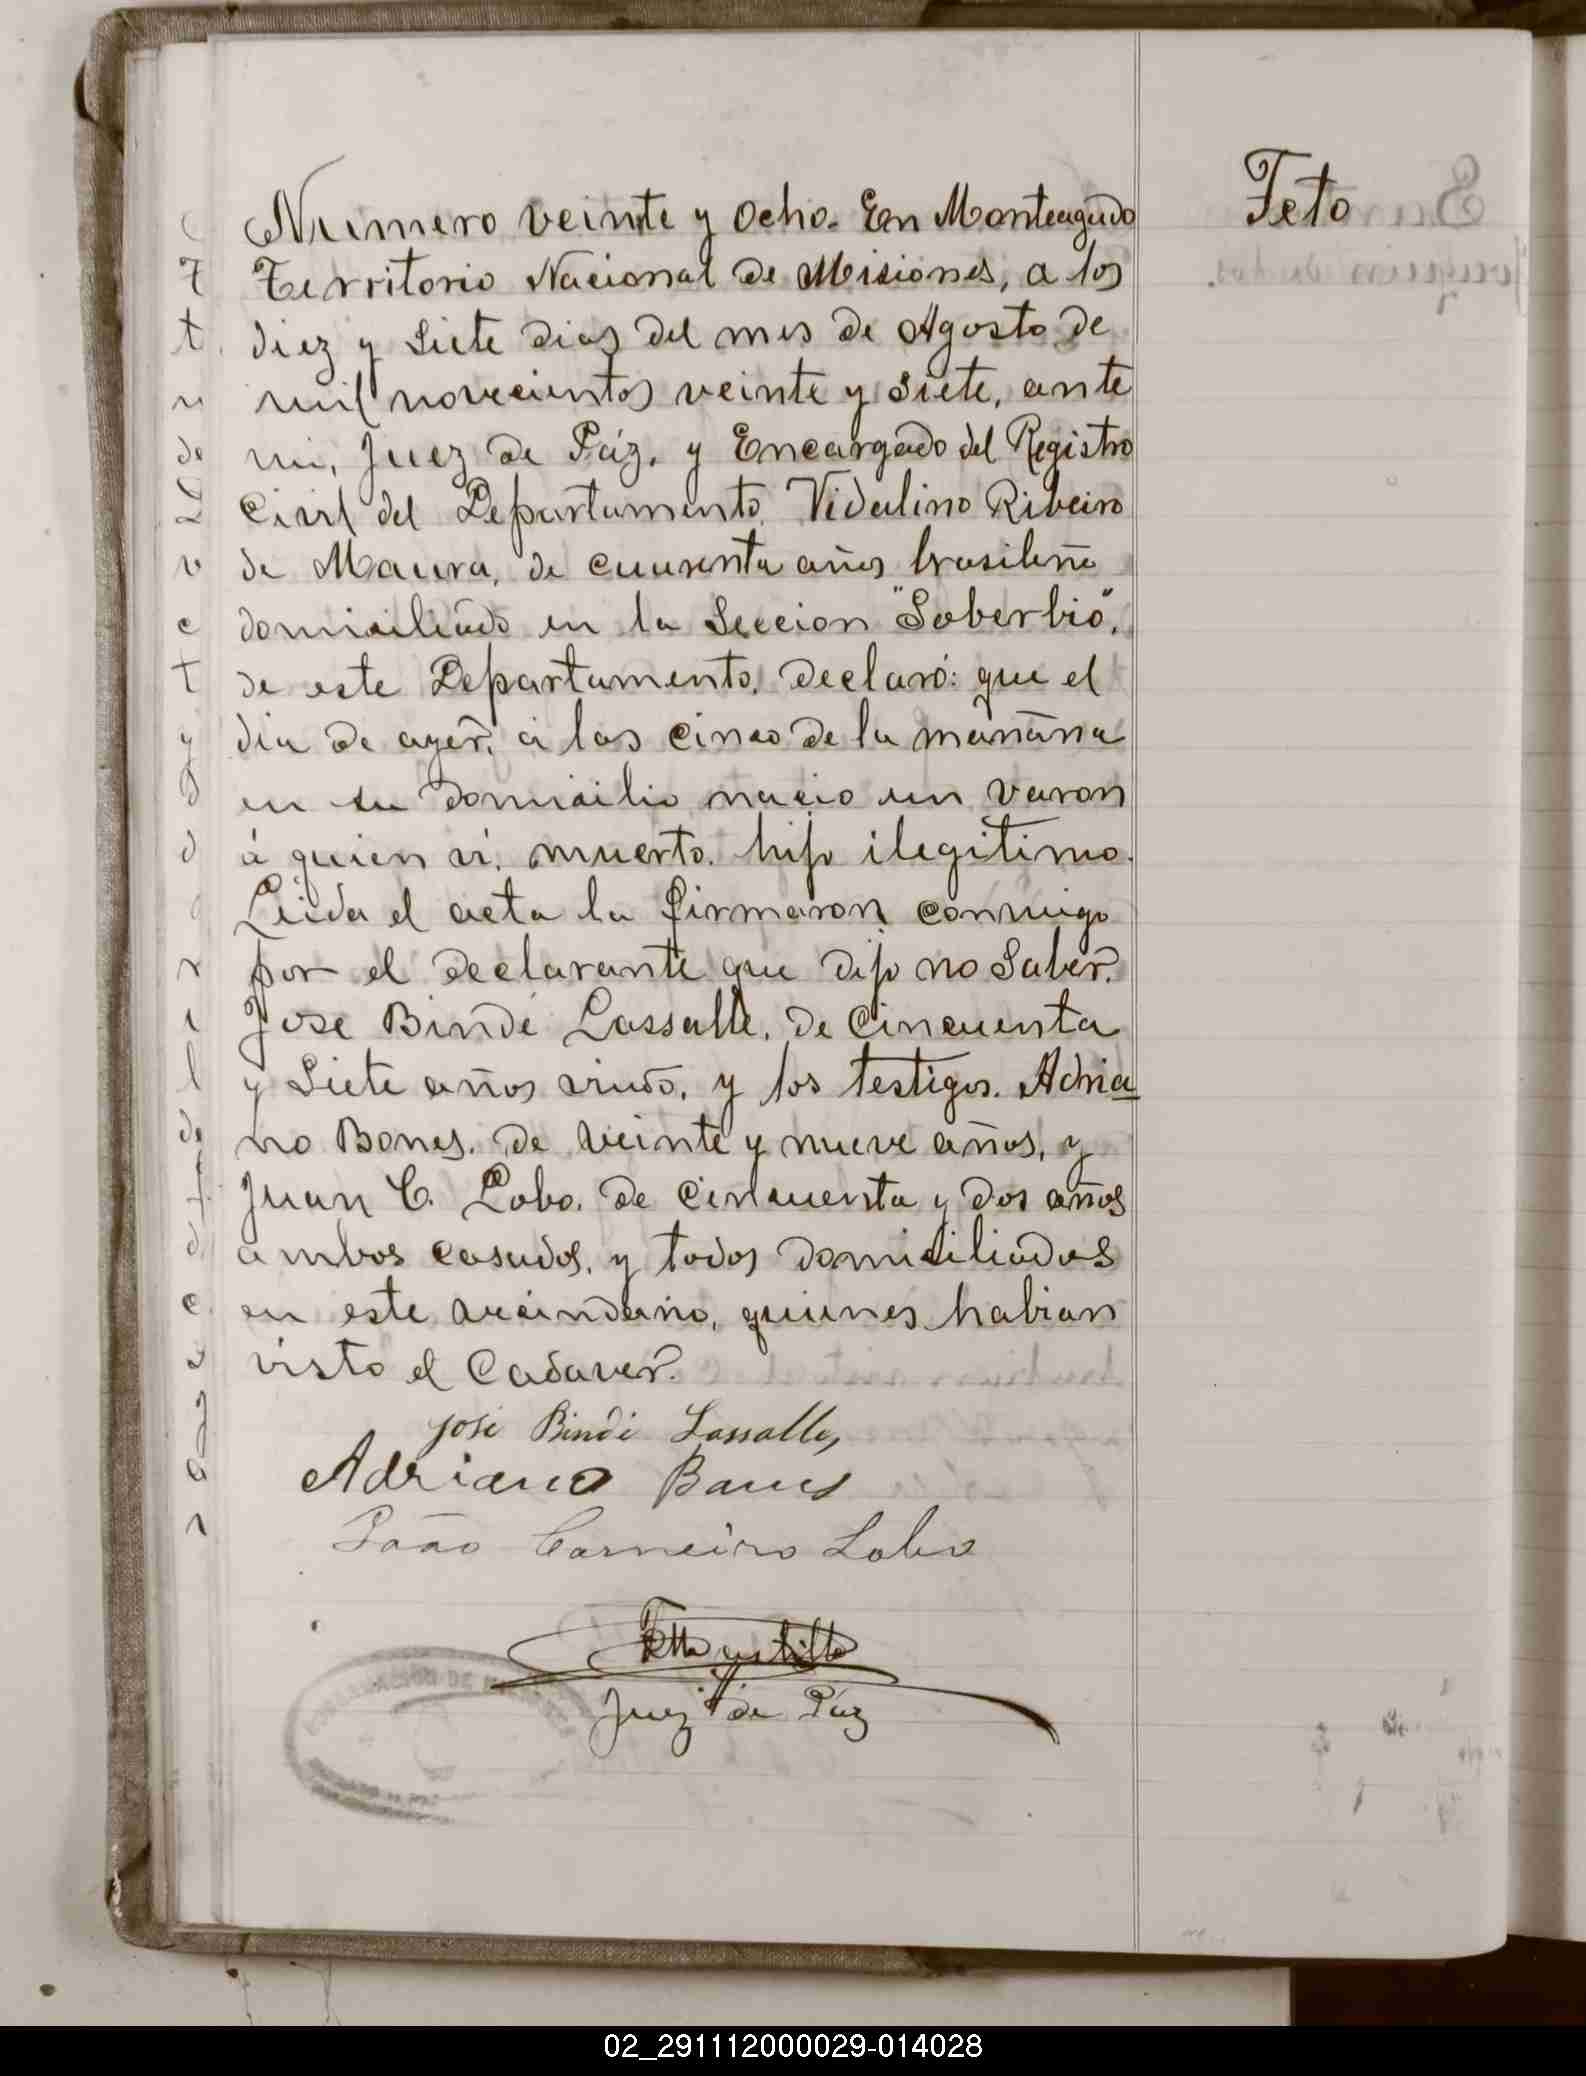 Feto
Numero veinte y ocho. En Monteagudo
Territorio Nacional de Misiones, a los
diez y siete dias del mes de Agosto de
mil novecientos veinte y siete, ante
mi, Juez de Páz, y Encargado del Registro
Civil del Departamento, Vidalino Ribeiro
de Maura, de cuarenta años brasileño
domiciliado en la Seccion "Soberbio",
de este Departamento, declaró: que el
dia de ayer, á las cinco de la mañana
en su domicilio nacio un varon
á quien vi, muerto, hijo ilegitimo.
Leida el acta la firmaron conmigo
por el declarante que dijo no saber,
Jose Bindé Lassalle, de cincuenta
y siete años viudo, y los testigos. Adria
no Bones, de veinte y nueve años, y
Juan C. Lobo, de cincuenta y dos años
ambos casados, y todos domiciliados
en este vecindario, quienes habian
visto el cadaver.
José Bindé Lassalle
Adriano Bones
João Carneiro Lobo
Juez de Páz
02_291112000029-014028